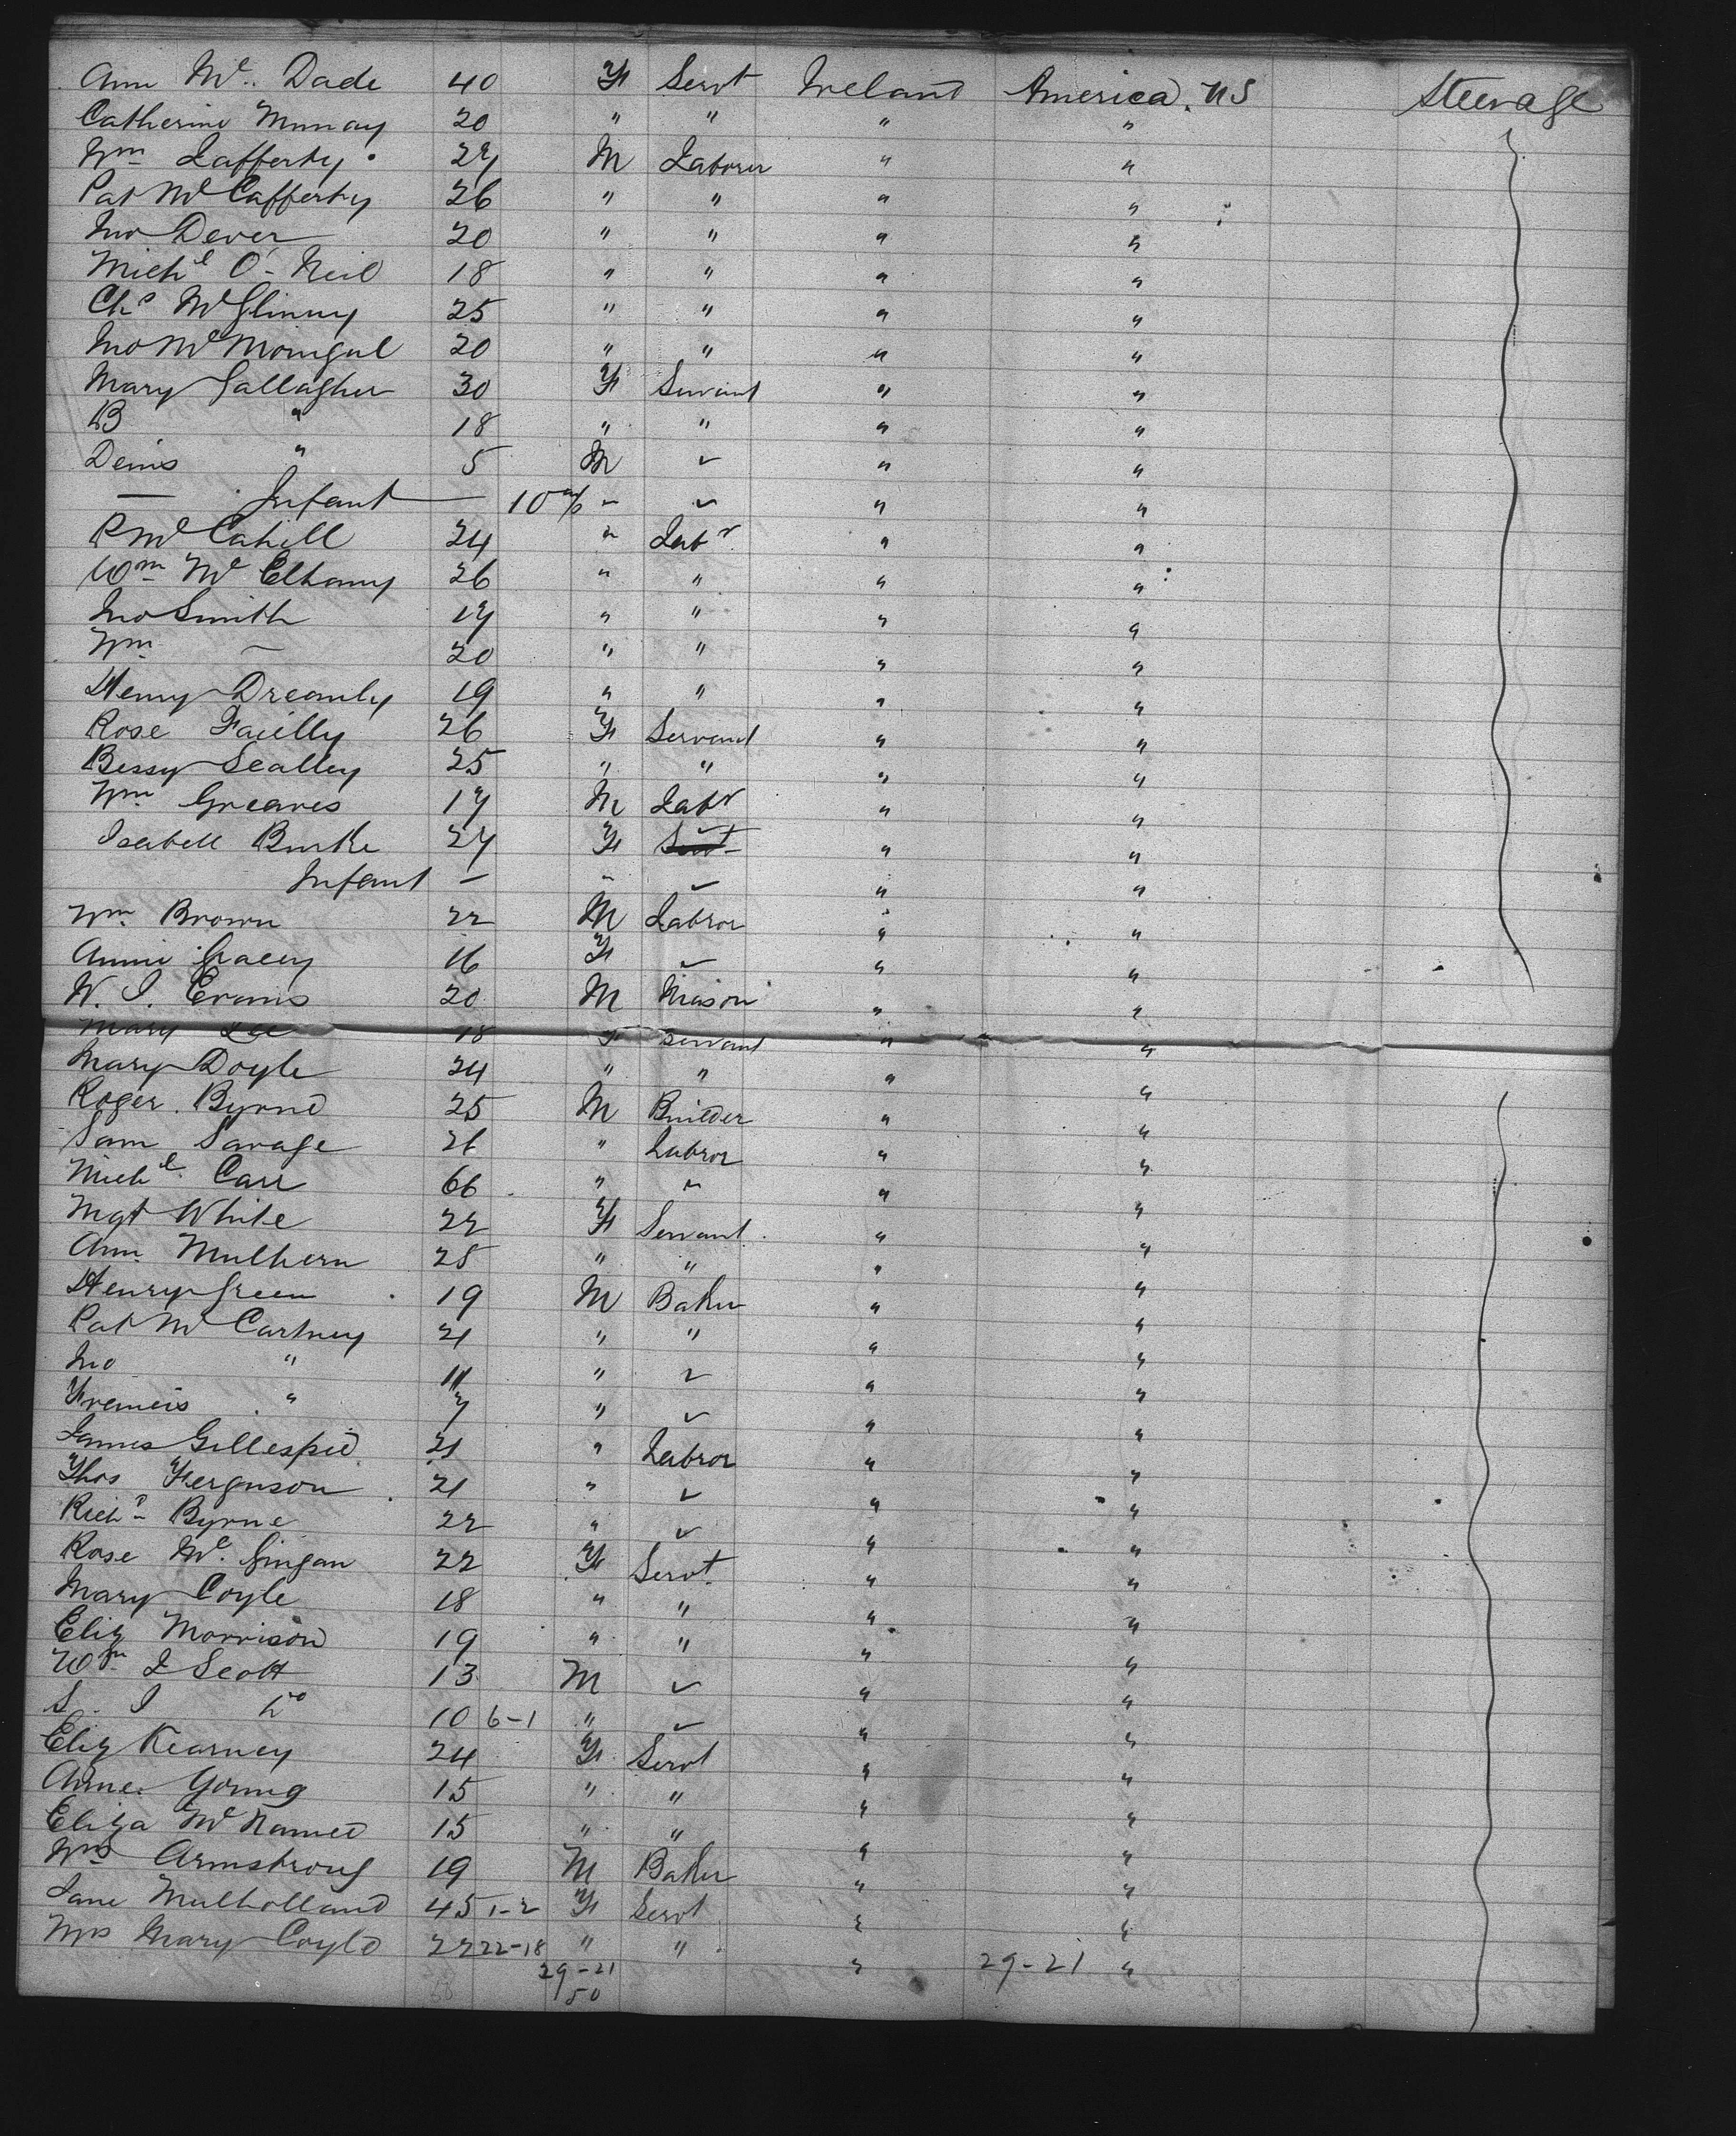 Ann Mc Dade 40 F Servt Ireland America. US Steerage
Catherine Murray 20 " " " "
Wm Lafferty 27 M Laborer " "
Pat Mc Cafferty 26 " " " "
Jno Dever 20 " " " "
Michl O'Neil 18 " " " "
Chs McGlinny 25 " " " "
Jno McMonigal 20 " " " "
Mary Gallagher 30 F Servant " "
B " 18 " " " "
Denis " 5 M ✓ " "
— Infant — 10 m/o " ✓ " "
R McCahill 24 " Labr " "
Wm Mc Elhany 26 " " " "
Jno Smith 17 " " " "
Wm — 20 " " " "
Henry 19 " " " "
Rose 26 F Servant " "
Bessy Scalley 25 " " " "
Wm Greaves 17 M Labr " "
Isabell Burke 27 F Servt " "
Infant — - ✓ " "
Wm Brown 22 M Labror " "
Annie Gracey 16 F ✓ " "
W. J. Evans 20 M Mason " "
Mary Lee 18 F Servant " "
Mary Doyle 24 " " " "
Roger Byrne 25 M Builder " "
Sam Savage 26 " Labror " "
Michl Carr 66 " " " "
Mgt White 22 F Servant " "
Ann Mulhern 28 " " " "
Henry Green 19 M Baker " "
Pat Mc Cartney 21 " " " "
Jno " 11 " ✓ " "
Francis " 7 " ✓ " "
James Gillespie 21 " Labror " "
Thos Ferguson 21 " ✓ " "
Richd Byrne 22 " ✓ " "
Rose Mc. Gingan 22 F Servt " "
Mary Coyle 18 " " " "
Eliz Morrison 19 " " " "
Wm J Scott 13 M ✓ " "
S. J Do 10 6-1 " ✓ " "
Eliz Kearney 24 F Servt " "
Anne Young 15 " " " "
Eliza McNamee 15 " " " "
Wm Armstrong 19 M Baker " "
Jane Mulholland 45 1-2 F Servt " "
Mrs Mary Coyle 22 22-18 " " " "
29-21 29-21
50